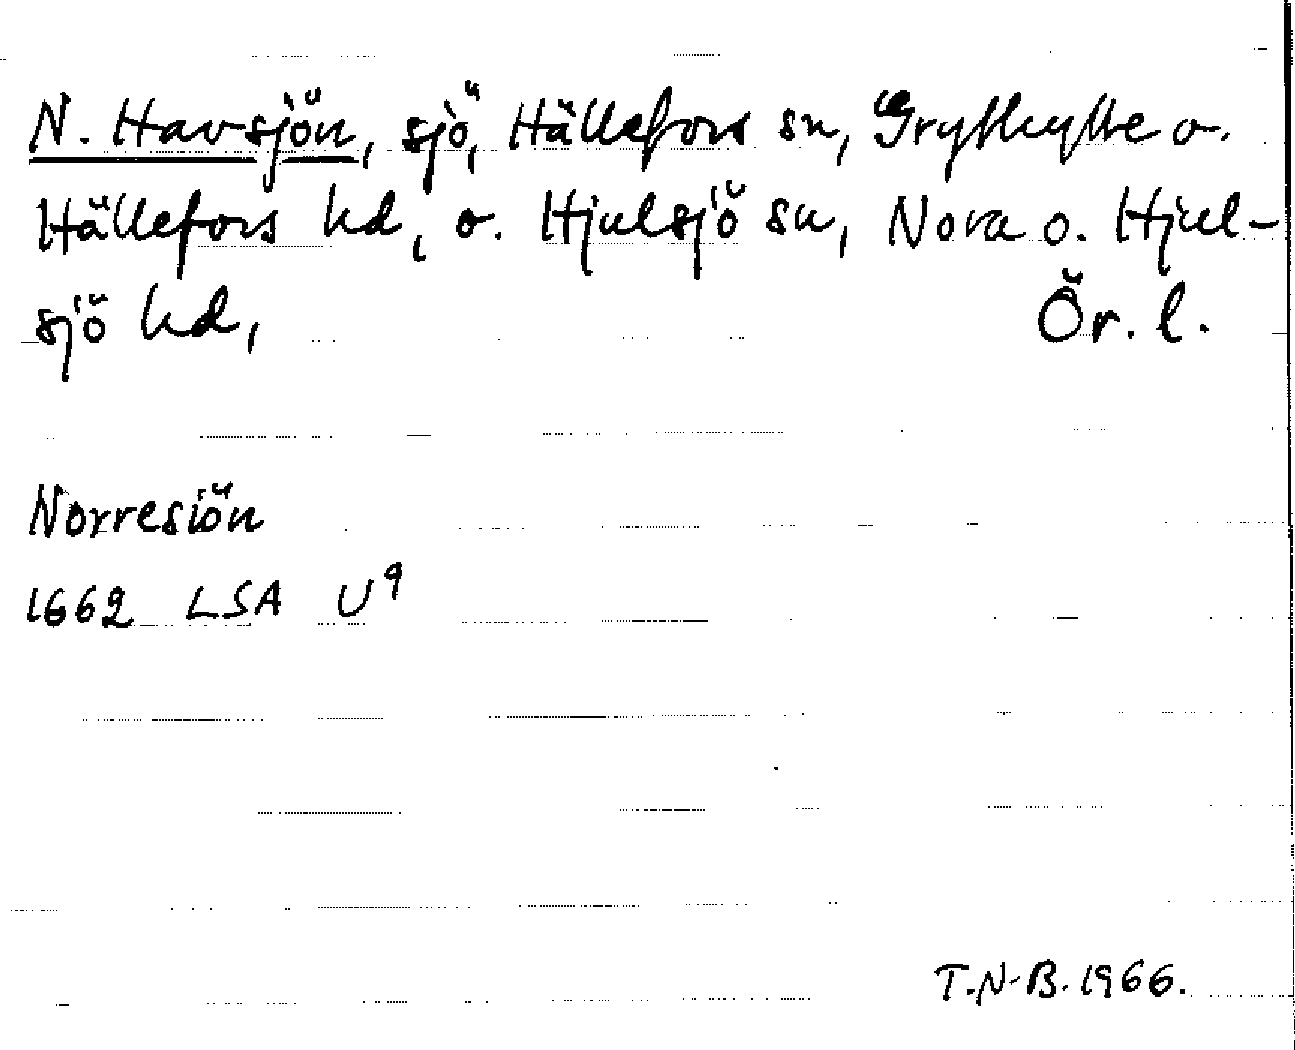 N. Havsjön, sjö, Hällefors sn, Grythytte o.
Hällefors hd, o. Hjulsjö sn, Nora o. Hjul-
sjö hd, Ör. l.
Norresiön
1662 LSA U9
T.N-B. 1966.